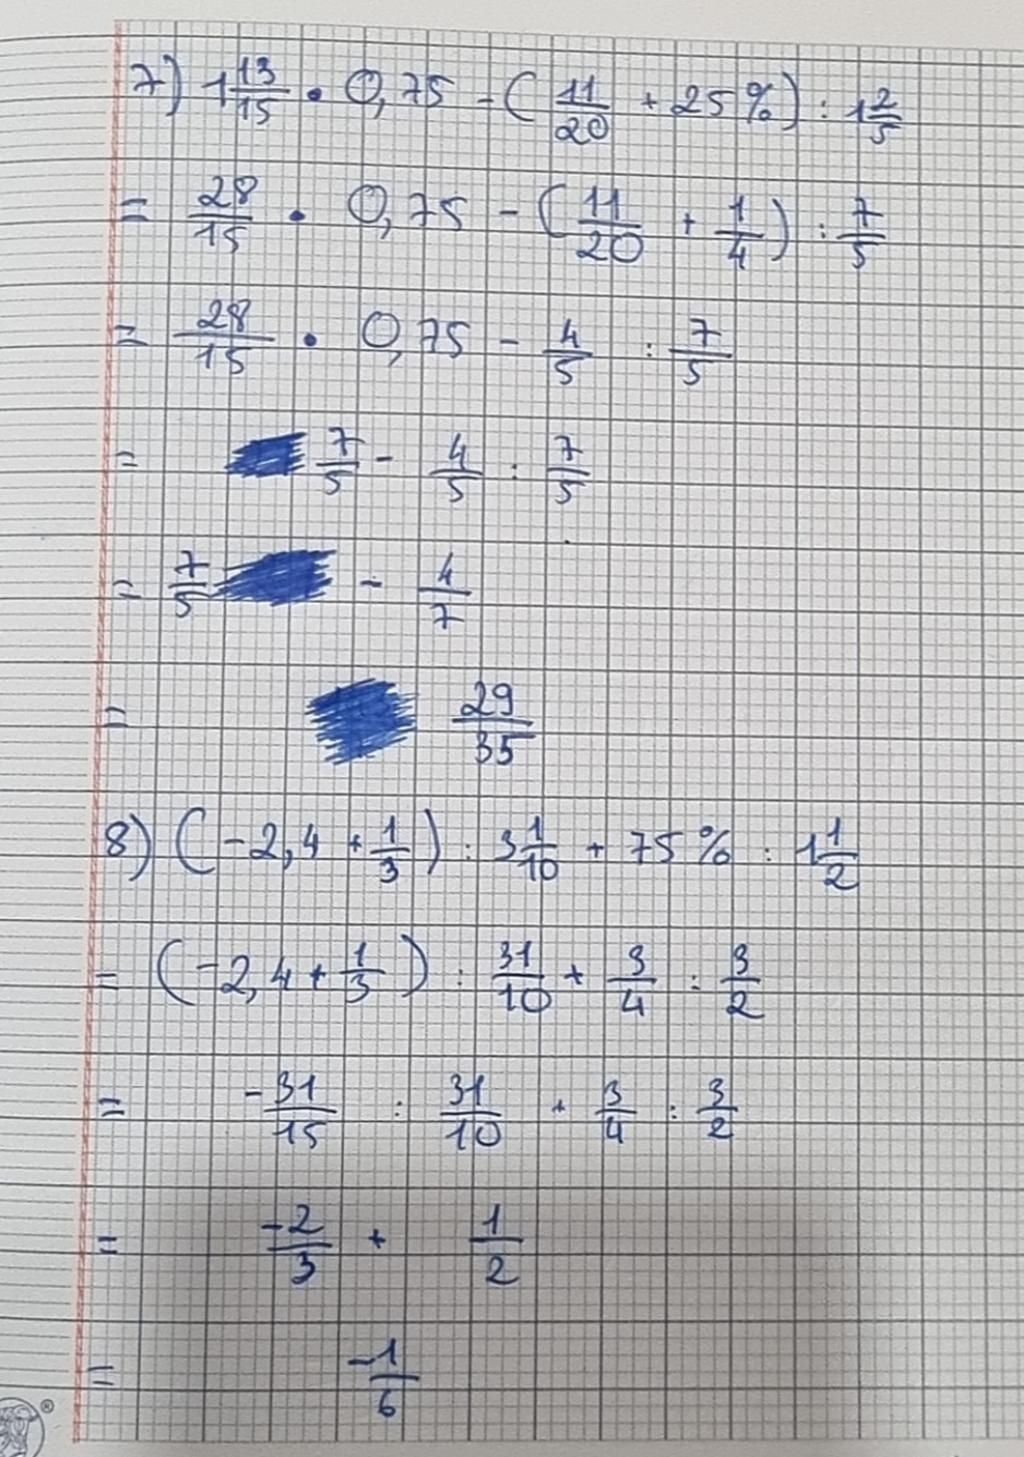 7) 1 13/15 • 0,75 - ( 11/20 + 25% ) : 1 2/5
= 28/15 • 0,75 - ( 11/20 + 1/4 ) : 7/5
= 28/15 • 0,75 - 4/5 : 7/5
= 7/5 - 4/5 : 7/5
= 7/5 - 4/7
= 29/35
8) ( -2,4 + 1/3 ) : 3 1/10 + 75% : 1 1/2
= ( -2,4 + 1/3 ) : 31/10 + 3/4 : 3/2
= -31/15 : 31/10 + 3/4 : 3/2
= -2/3 + 1/2
= -1/6
®